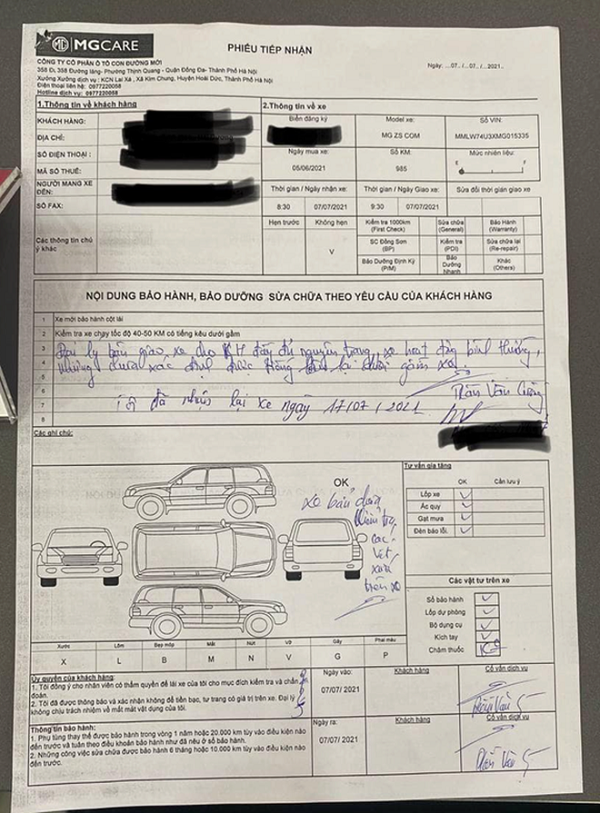 MG MGCARE
PHIẾU TIẾP NHẬN
CÔNG TY CỔ PHẦN Ô TÔ CON ĐƯỜNG MỚI
358 Đ, 358 Đường láng- Phường Thịnh Quang - Quận Đống Đa- Thành Phố Hà Nội
Xưởng Xưởng dịch vụ : KCN Lai Xá , Xã Kim Chung, Huyện Hoài Đức, Thành Phố Hà Nội
Điện thoại liên hệ: 0977220058
Hotline dịch vụ: 0977220058
Ngày: ...07. /...07. /...2021.
1.Thông tin về khách hàng
2.Thông tin về xe
KHÁCH HÀNG:
ĐỊA CHỈ:
SỐ ĐIỆN THOẠI :
MÃ SỐ THUẾ:
NGƯỜI MANG XE ĐẾN:
SỐ FAX:
Các thông tin chú ý khác
Biển đăng ký
Model xe:
Số VIN:
MG ZS COM
MMLW74U3XMG015335
Ngày mua xe:
Số KM:
Mức nhiên liệu:
05/06/2021
985
E
Thời gian / Ngày nhận xe:
Thời gian / Ngày Giao xe:
Sửa đổi thời gian giao xe
8:30
07/07/2021
9:30
07/07/2021
Hẹn trước
Không hẹn
Kiểm tra 1000km (First Check)
Sửa chữa (General)
Bảo Hành (Warranty)
V
SC Đồng Sơn (B/P)
Kiểm tra (PDI)
Sửa chữa lại (Re-repair)
Bảo Dưỡng Định Kỳ (P/M)
Bảo Dưỡng Nhanh
Khác (Others)
NỘI DUNG BẢO HÀNH, BẢO DƯỠNG SỬA CHỮA THEO YÊU CẦU CỦA KHÁCH HÀNG
1 Xe một bảo hành cột lái
2 Kiểm tra xe chạy tốc độ 40-50 KM có tiếng kêu dưới gầm
3 Đại lý bàn giao xe cho KH đầy đủ nguyên trạng, xe hoạt động bình thường,
4 nhưng chưa xác định được gầm xe.
5
6 đã nhận lại xe ngày 17/07/2021
7
8
Các ghi chú:
OK
xe bẩn
các
vết
xước
trên xe
Tư vấn gia tăng
OK
Cần lưu ý
Lốp xe
Ắc quy
Gạt mưa
Đèn báo lỗi
Các vật tư trên xe
Sổ bảo hành
Lốp dự phòng
Bộ dụng cụ
Kích tay
Châm thuốc
Xước
Lõm
Bẹp móp
Mất
Nứt
Vỡ
Gãy
Phai màu
X
L
B
M
N
V
G
P
Ủy quyền của khách hàng:
1. Tôi đồng ý cho nhân viên có thẩm quyền để lái xe của tôi cho mục đích kiểm tra và chẩn đoán.
2. Tôi đã được thông báo và xác nhận không để tiền bạc, tư trang có giá trị trên xe. Đại lý không chịu trách nhiệm về mất mát vật dụng của tôi.
Ngày vào:
07/07/ 2021
Khách hàng
Cố vấn dịch vụ
Thông tin bảo hành:
1. Phụ tùng thay thế được bảo hành trong vòng 1 năm hoặc 20.000 km tùy vào điều kiện nào đến trước và tuân theo điều khoản bảo hành như đã nêu ở sổ bảo hành.
2. Những công việc sửa chữa được bảo hành 6 tháng hoặc 10.000 km tùy vào điều kiện nào đến trước.
Ngày ra:
07/07/ 2021
Khách hàng
Cố vấn dịch vụ